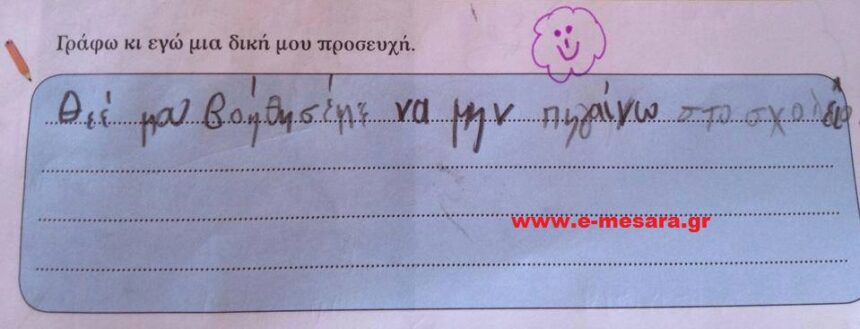 Γράφω κι εγώ μια δική μου προσευχή.
Θεέ μου βοήθησέ με να μην πηγαίνω στο σχολείο
www.e-mesara.gr